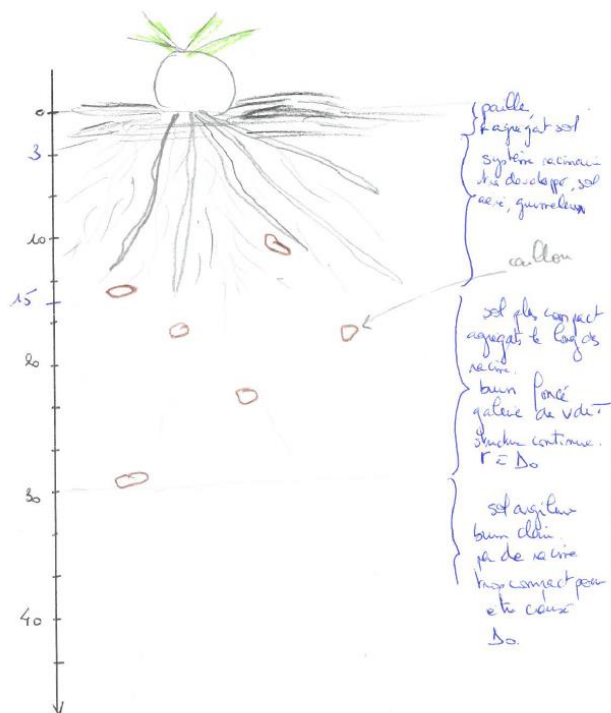 0
3
10
15
20
30
40
paille
agrégat sol
système racinaire
très développé, sol
aéré, grumeleux
caillou
sol plus compact
agrégats le long des
racine.
brun foncé
galerie de vdt
structure continue.
sol argileux
brun clair.
pas de racine
trop compact pour
être creusé
Δo.